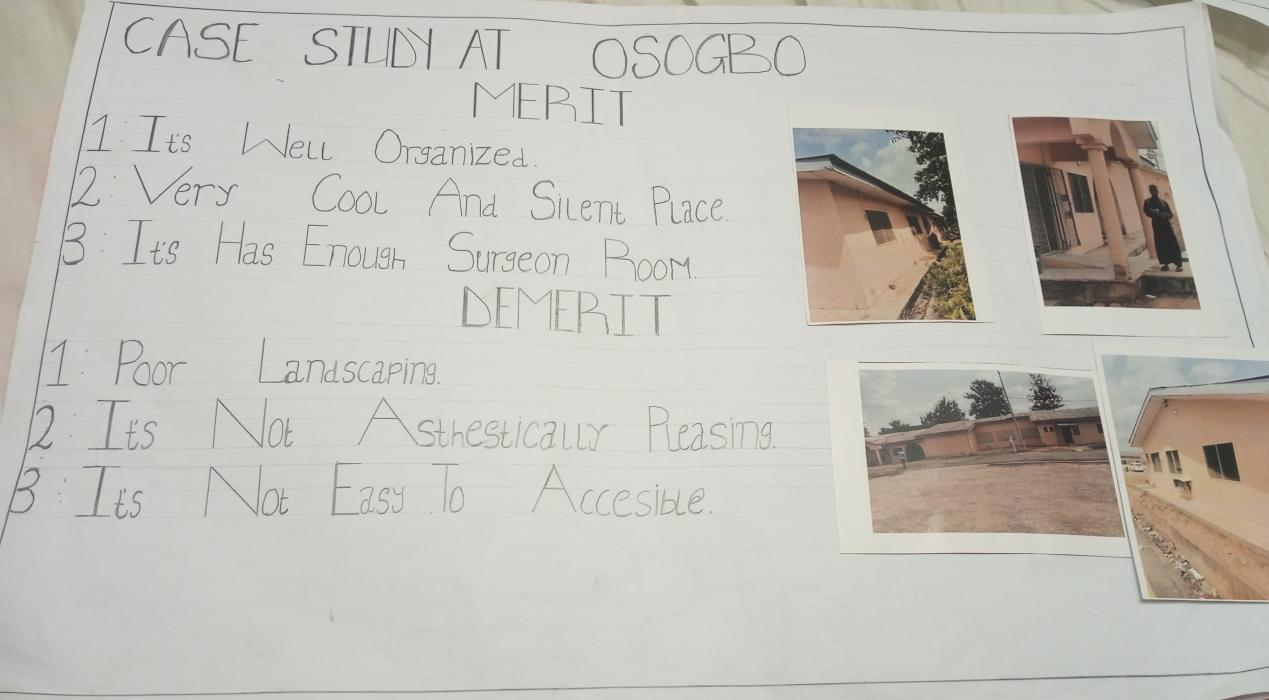 CASE STUDY AT OSOGBO
MERIT
1: It's Well Organized.
2: Very Cool And Silent Place.
3: It's Has Enough Surgeon Room.
DEMERIT
1: Poor Landscaping.
2: It's Not Asthestically Pleasing.
3: It's Not Easy To Accesible.